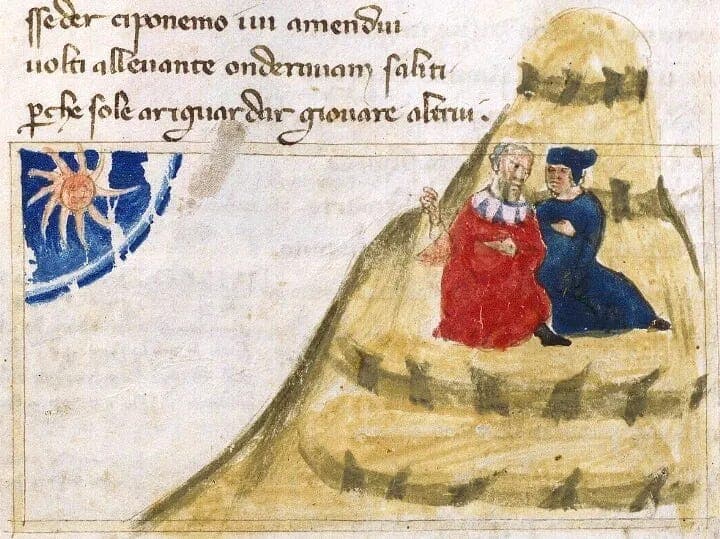 sseder ci ponemo iui amendui
uolti alleuante onderauam saliti
ꝑche sole ariguardar giouare altrui.